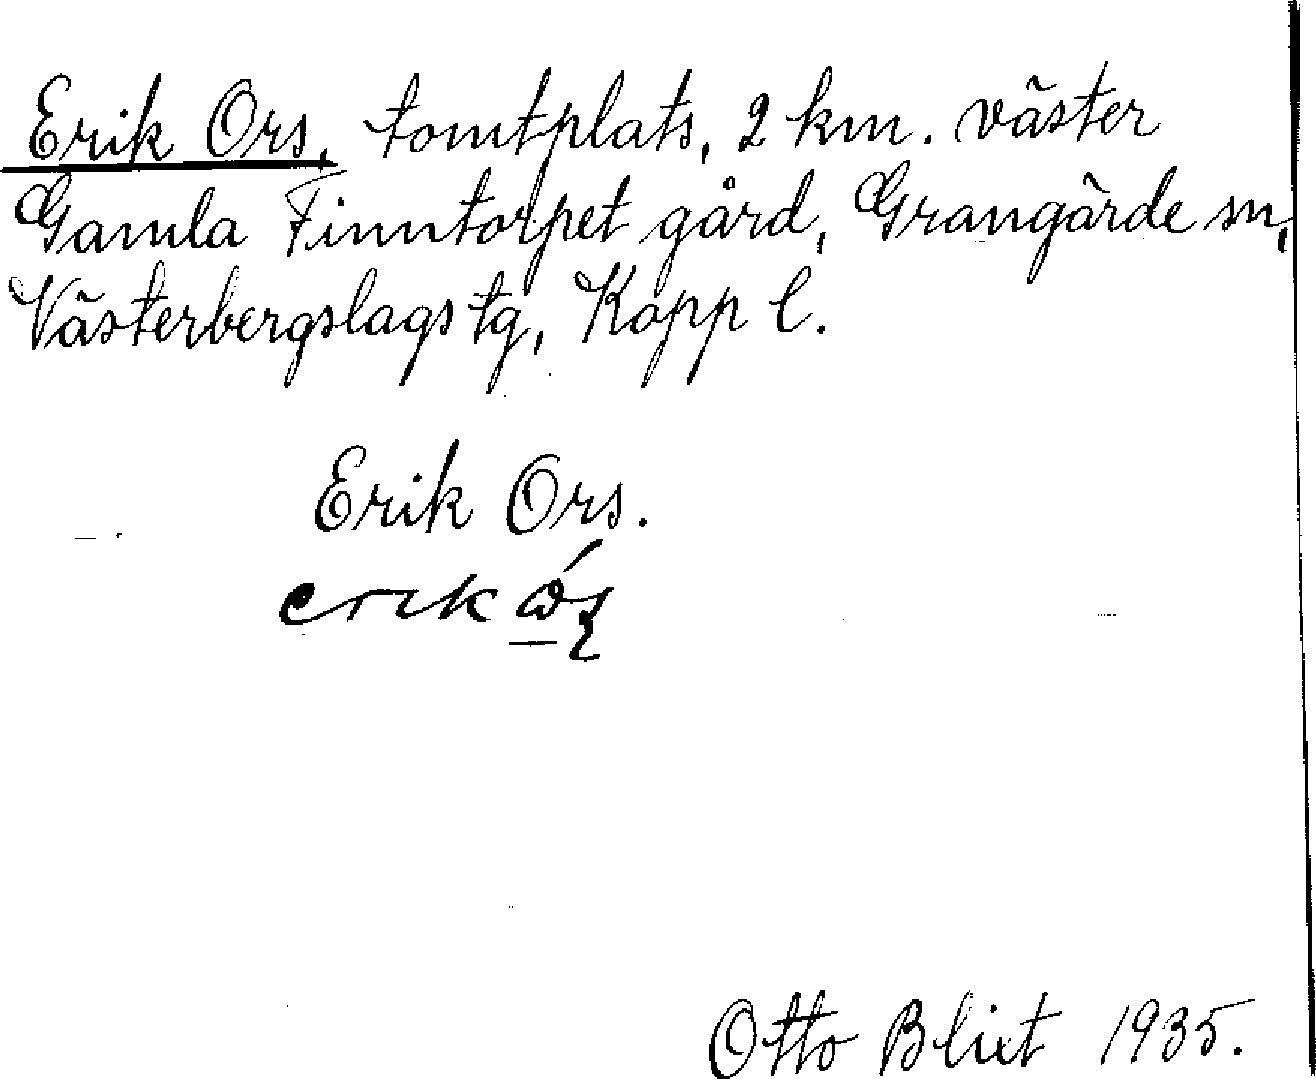 Erik Ors, tomtplats, 2 km. väster
Gamla Finntorpet gård, Grangärde sn,
Västerbergslags tg, Kopp l.
Erik Ors.
erik
Otto Blixt 1935.